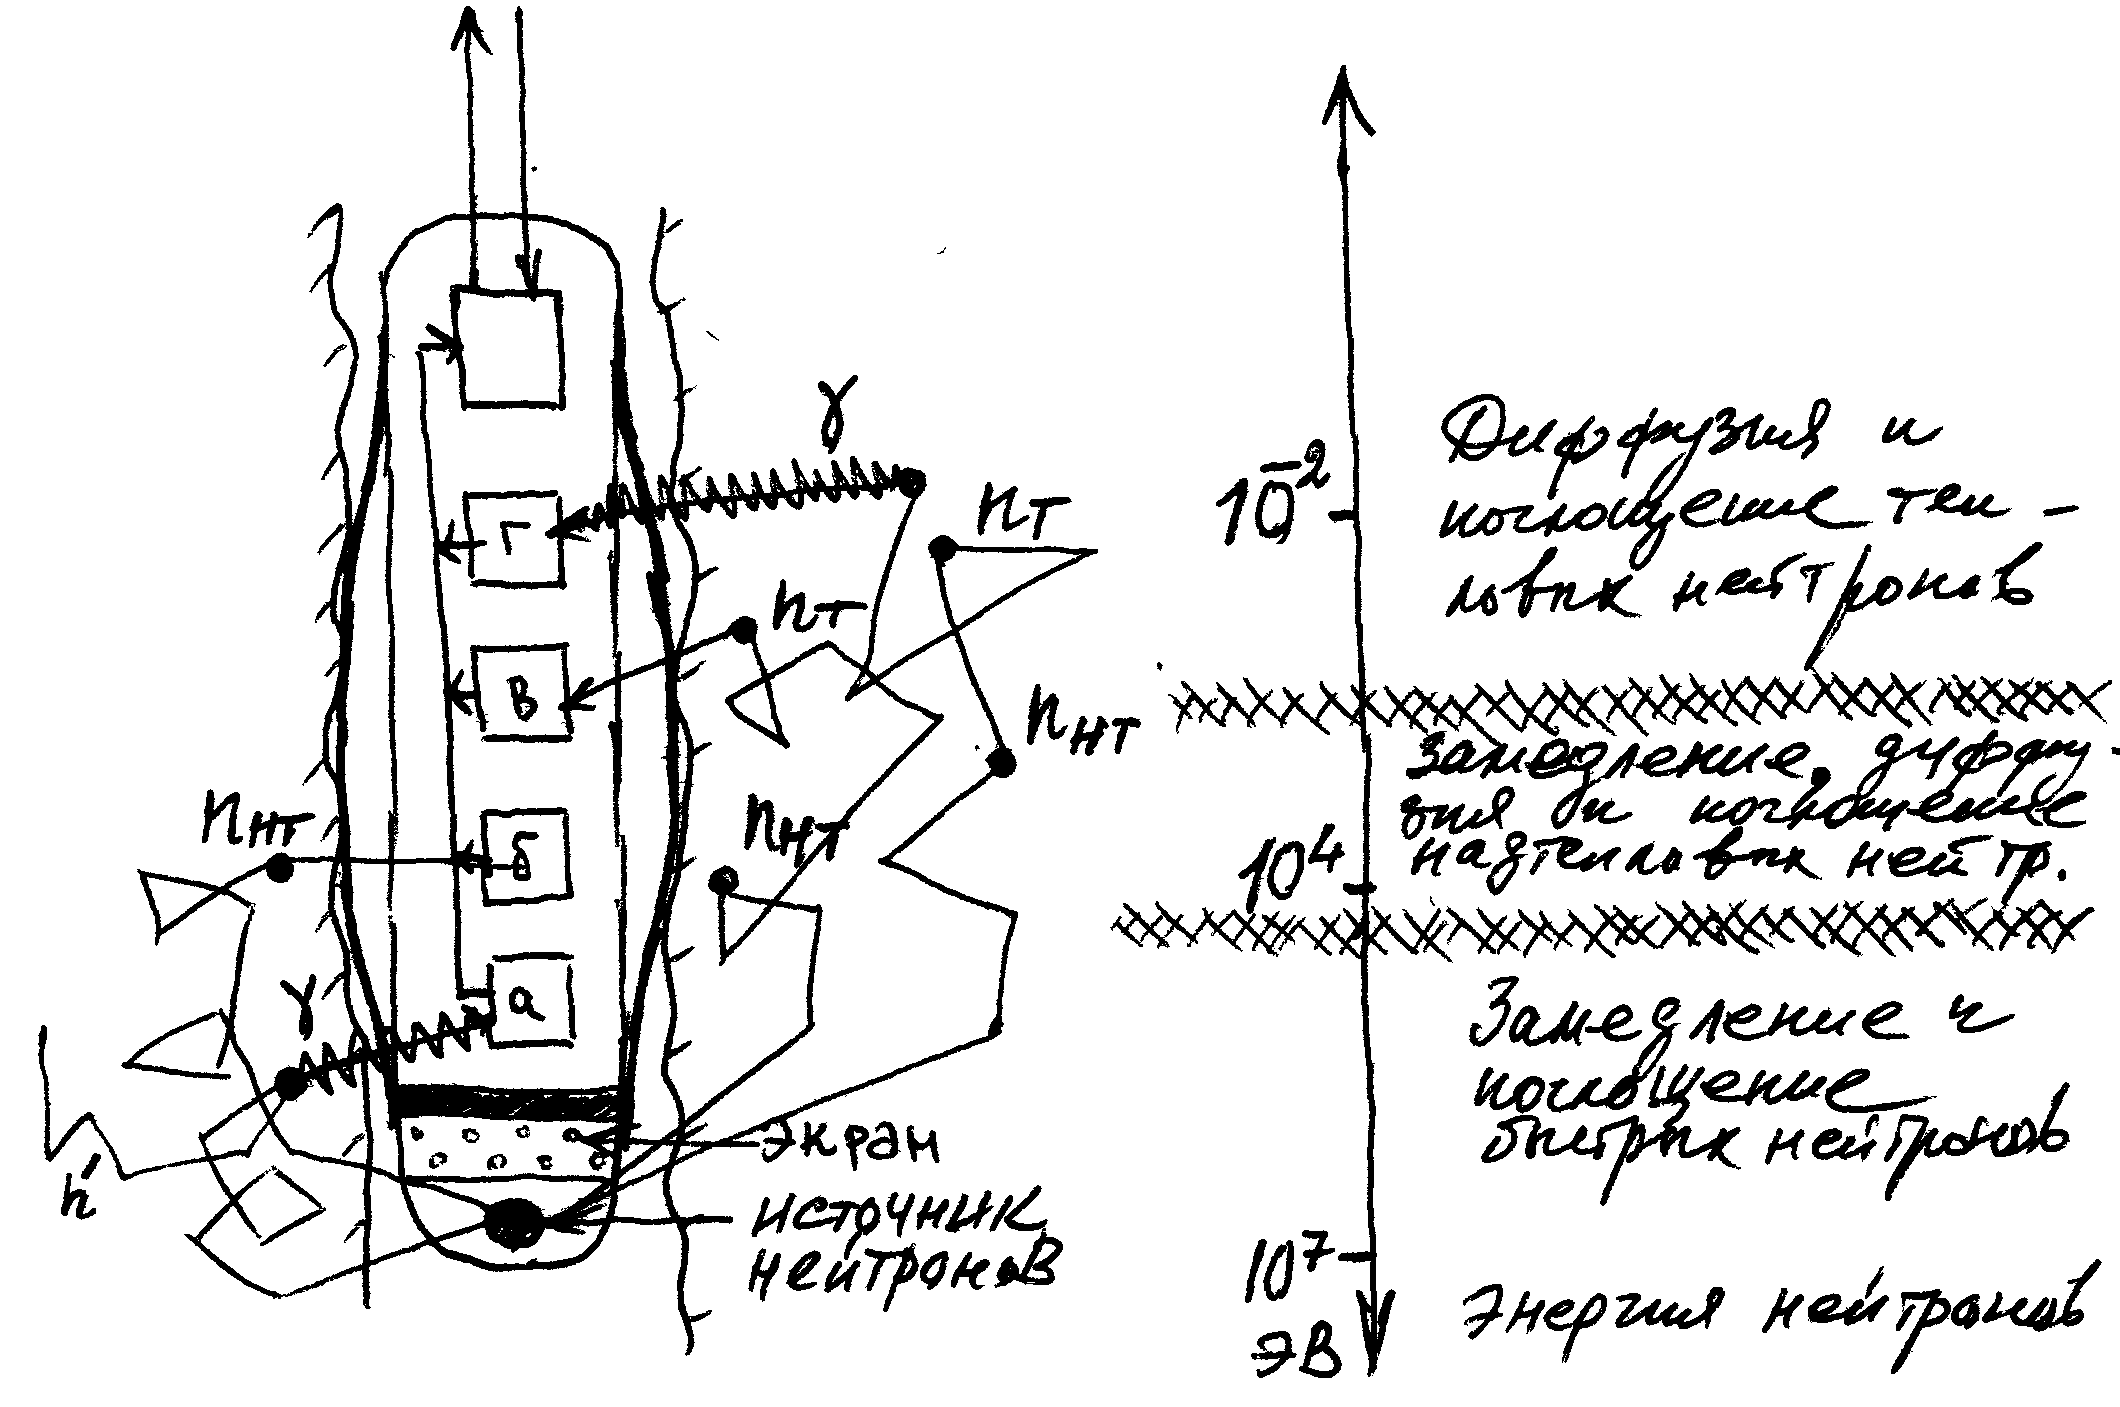 γ
n т
n т
n нт
n нт
n нт
γ
n'
г
в
б
а
экран
источник
нейтронов
10⁻²
10⁴
10⁷
эВ
Диффузия и
поглощение теп -
ловых нейтронов
Замедление, диффу -
зия и поглощение
надтепловых нейтр.
Замедление и
поглощение
быстрых нейтронов
Энергия нейтронов